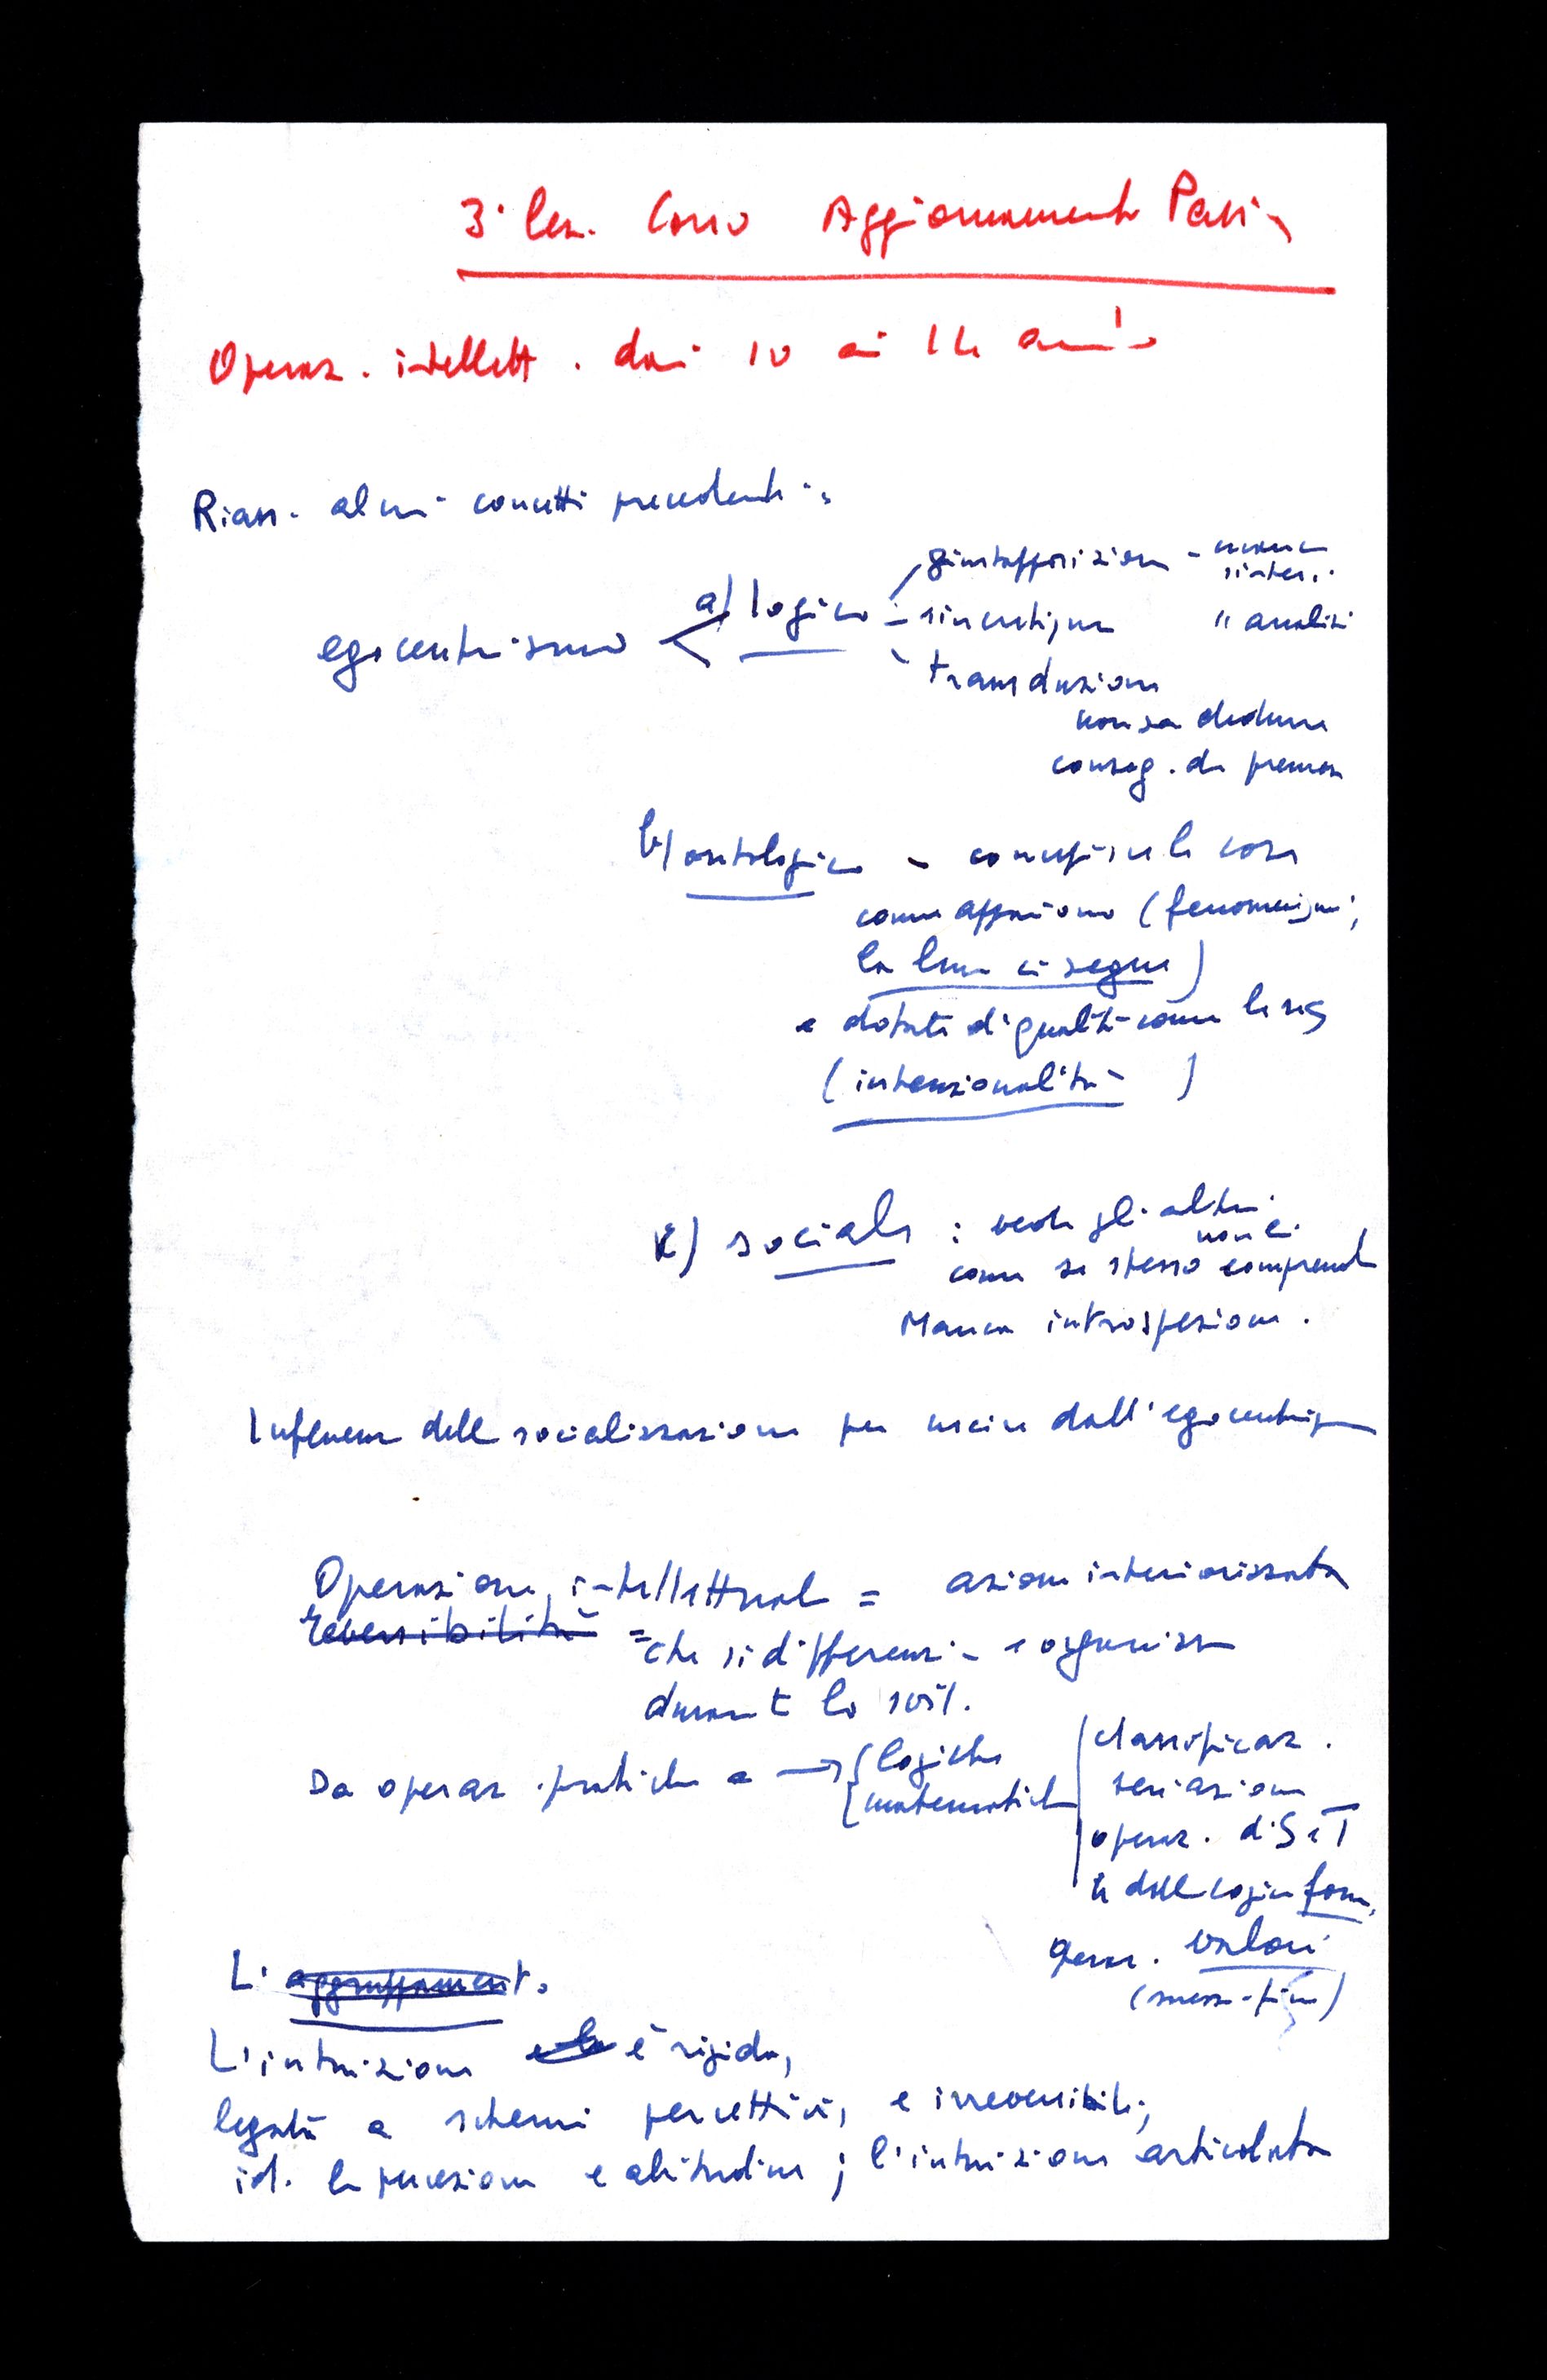 3ª Lez. Corso Aggiornamento
Operaz. intellett. dai 10 ai 14 anni
Riass. alcuni concetti precedenti:
egocentrismo
a) logico
giustapposizione - manca sintesi
sincretismo " analisi
transduzione
non sa dedurre
conseg. da premesse
b) ontologico - concepisce le cose
come appaiono (fenomenismo;
la luna ci segue)
e dotate di qualità come le sue
(intenzionalità)
c) sociale : vede gli altri
come se stesso non li comprende
Manca introspezione.
Influenza della socializzazione per uscire dall'egocentrismo
Operazione intellettuale = azione interiorizzata
reversibilità = che si differenzia e organizza
durante lo svil.
Da operaz. pratiche a → logiche
matematiche
classificaz.
seriazione
operaz. di S e T
e della logica form.
operaz. valori
(mezzi-fini)
L'aggruppamento
L'intuizione è rigida,
legata a schemi percettivi, e irreversibile;
id. la percezione e abitudine; l'intuizione articolata